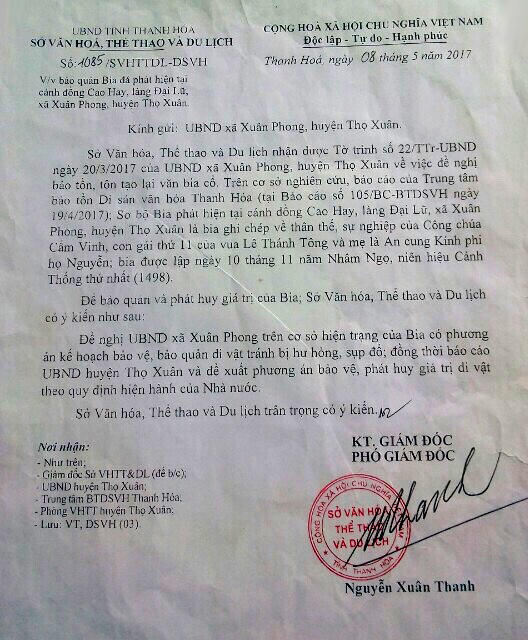 UBND TỈNH THANH HÓA
SỞ VĂN HOÁ, THỂ THAO VÀ DU LỊCH
CỘNG HOÀ XÃ HỘI CHỦ NGHĨA VIỆT NAM
Độc lập - Tự do - Hạnh phúc
Số: 1085/SVHTTDL-DSVH
Thanh Hoá, ngày 08 tháng 5 năm 2017
V/v bảo quản Bia đá phát hiện tại
cánh đồng Cao Hay, làng Đại Lữ,
xã Xuân Phong, huyện Thọ Xuân.
Kính gửi: UBND xã Xuân Phong, huyện Thọ Xuân.
Sở Văn hóa, Thể thao và Du lịch nhận được Tờ trình số 22/TTr-UBND
ngày 20/3/2017 của UBND xã Xuân Phong, huyện Thọ Xuân về việc đề nghị
bảo tồn, tôn tạo lại văn bia cổ. Trên cơ sở nghiên cứu, báo cáo của Trung tâm
bảo tồn Di sản văn hóa Thanh Hóa (tại Báo cáo số 105/BC-BTDSVH ngày
19/4/2017); Sơ bộ Bia phát hiện tại cánh đồng Cao Hay, làng Đại Lữ, xã Xuân
Phong, huyện Thọ Xuân là bia ghi chép về thân thế, sự nghiệp của Công chúa
Cẩm Vinh, con gái thứ 11 của vua Lê Thánh Tông và mẹ là An cung Kính phi
họ Nguyễn; bia được lập ngày 10 tháng 11 năm Nhâm Ngọ, niên hiệu Cảnh
Thống thứ nhất (1498).
Để bảo quản và phát huy giá trị của Bia; Sở Văn hóa, Thể thao và Du lịch
có ý kiến như sau:
Đề nghị UBND xã Xuân Phong trên cơ sở hiện trạng của Bia có phương
án kế hoạch bảo vệ, bảo quản di vật tránh bị hư hỏng, sụp đổ; đồng thời báo cáo
UBND huyện Thọ Xuân và đề xuất phương án bảo vệ, phát huy giá trị di vật
theo quy định hiện hành của Nhà nước.
Sở Văn hóa, Thể thao và Du lịch trân trọng có ý kiến.
Nơi nhận:
- Như trên;
- Giám đốc Sở VHTT&DL (để b/c);
- UBND huyện Thọ Xuân;
- Trung tâm BTDSVH Thanh Hóa;
- Phòng VHTT huyện Thọ Xuân;
- Lưu: VT, DSVH (03).
KT. GIÁM ĐỐC
PHÓ GIÁM ĐỐC
CỘNG HOÀ XÃ HỘI CHỦ NGHĨA
SỞ VĂN HÓA
THỂ THAO
VÀ DU LỊCH
TỈNH THANH HÓA
Nguyễn Xuân Thanh